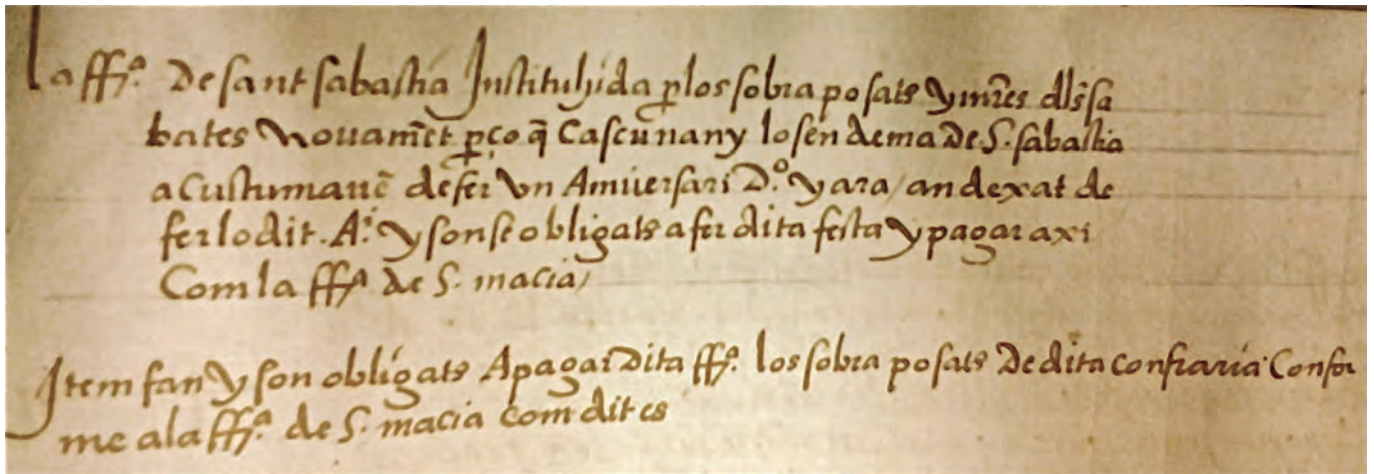 la ffª. De sant sabastia Instituhida p̲los sobra posats y mr̃es dls̃ sa
bates Nouamẽt p̲ço q̃ Cascun any lo sen dema De S. sabastia
a Custumauẽ de fer Vn Aniuersari D.º y ara / an dexat de
fer lo dit. Aⁱ. y son se obligats a fer dita festa y pagar axi
Com la ffª de S. macia /
Item fan y son obligats A pagar Dita ffª. los sobra posats De dita confraria Confor
me a la ffª. de S. macia com dit es